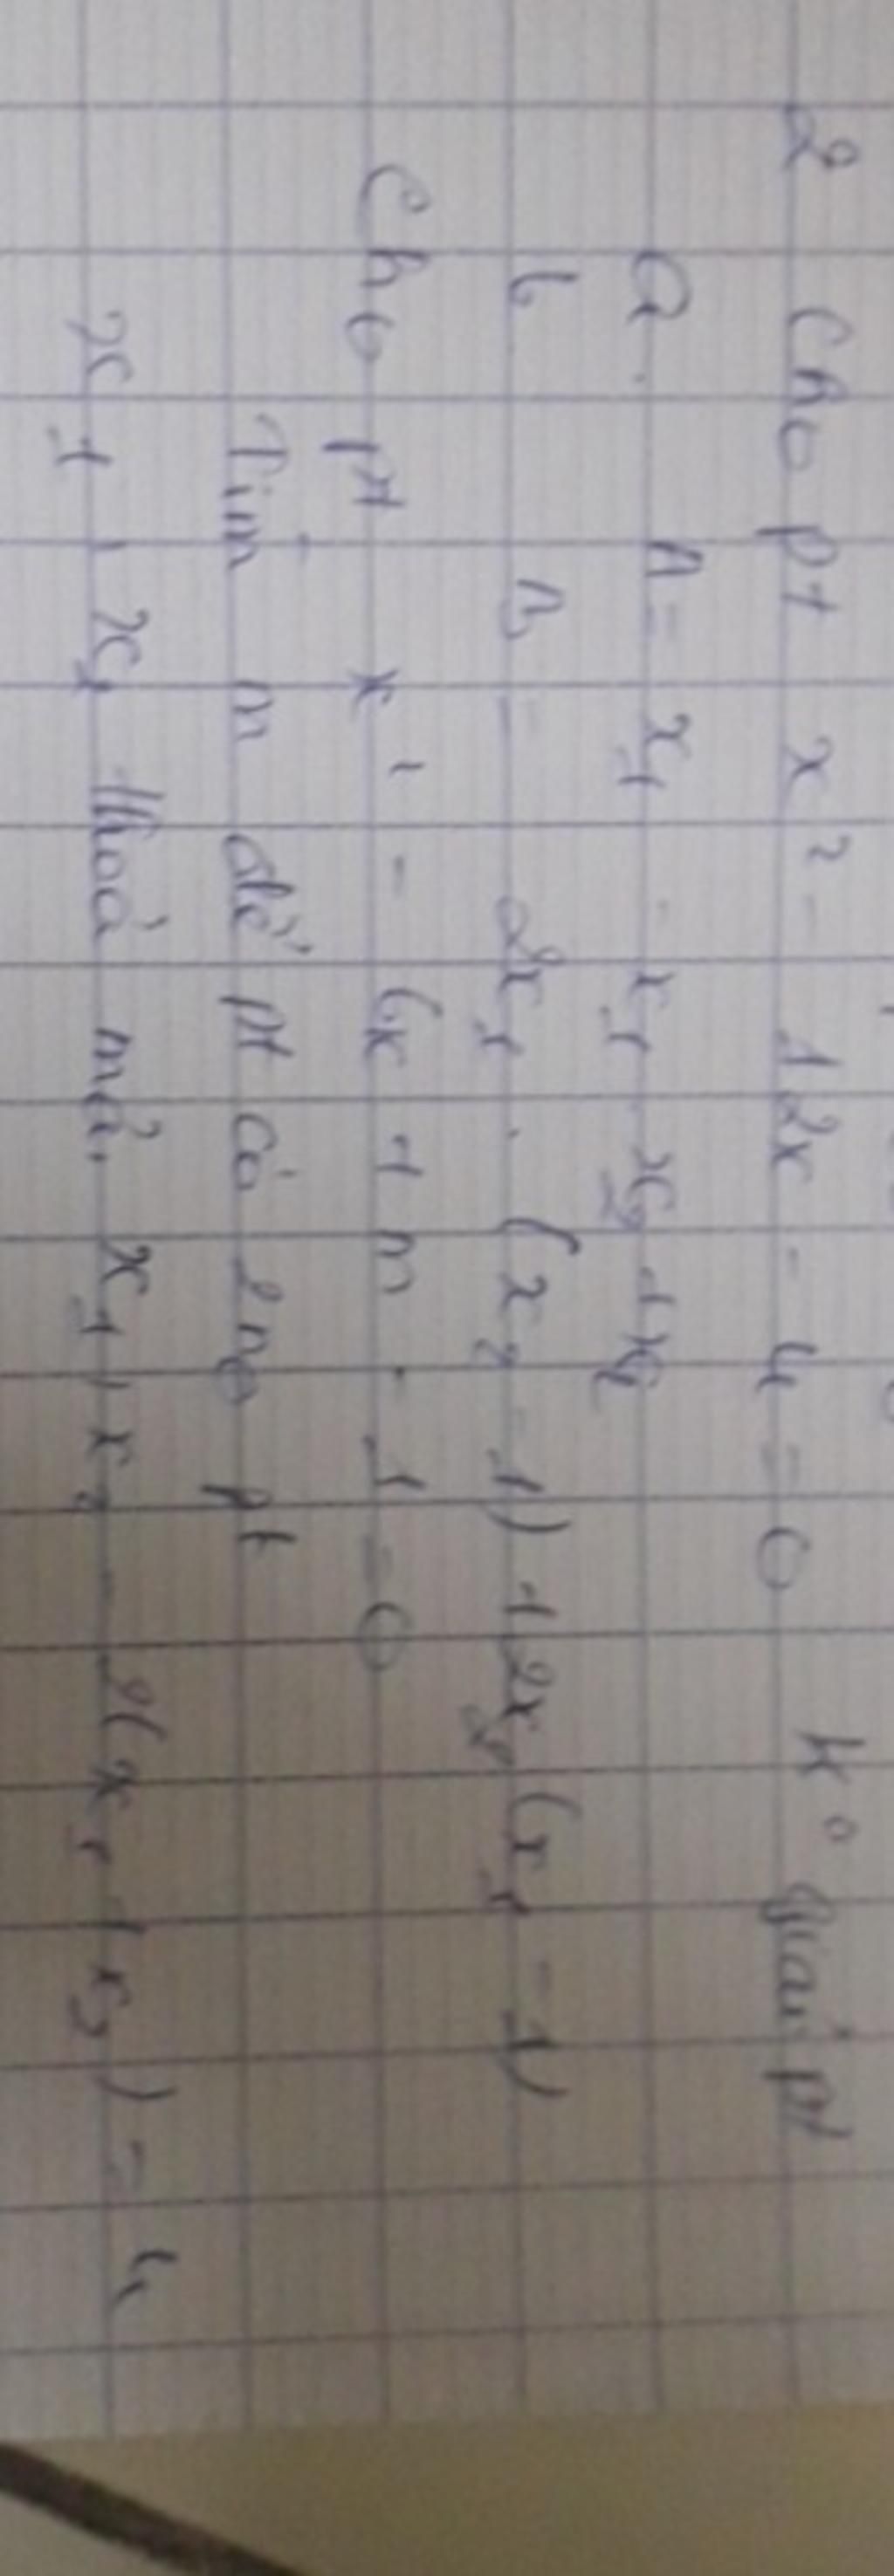 2 Cho pt x² - 12x - 4 = 0 ko giải pt
a. A = x₁ - x₁ . x₂ + x₂
b B = 2x₁ . (x₂ - 1) + 2x₂ (x₁ - 1)
Cho pt x² - 6x + m - 1 = 0
Tìm m để pt có 2 no pt
x₁, x₂ thoả mã. x₁ . x₂ - 2(x₁ + x₂) = 4